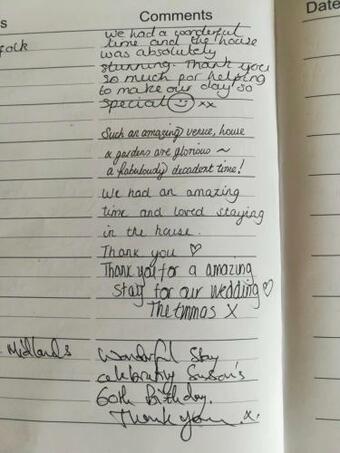 s
Comments
Date
folk
We had a wonderful
time and the house
was absolutely
stunning. Thank you
so much for helping
to make our day so
special ☺ xx
Such an amazing venue, house
& gardens are glorious ~
a fabulously decadent time!
We had an amazing
time and loved staying
in the house.
Thank you ♡
Thank you for a amazing
stay for our wedding ♡
The X
Midlands
Wonderful Stay
celebrating Susan's
60th Birthday.
Thank you .x.